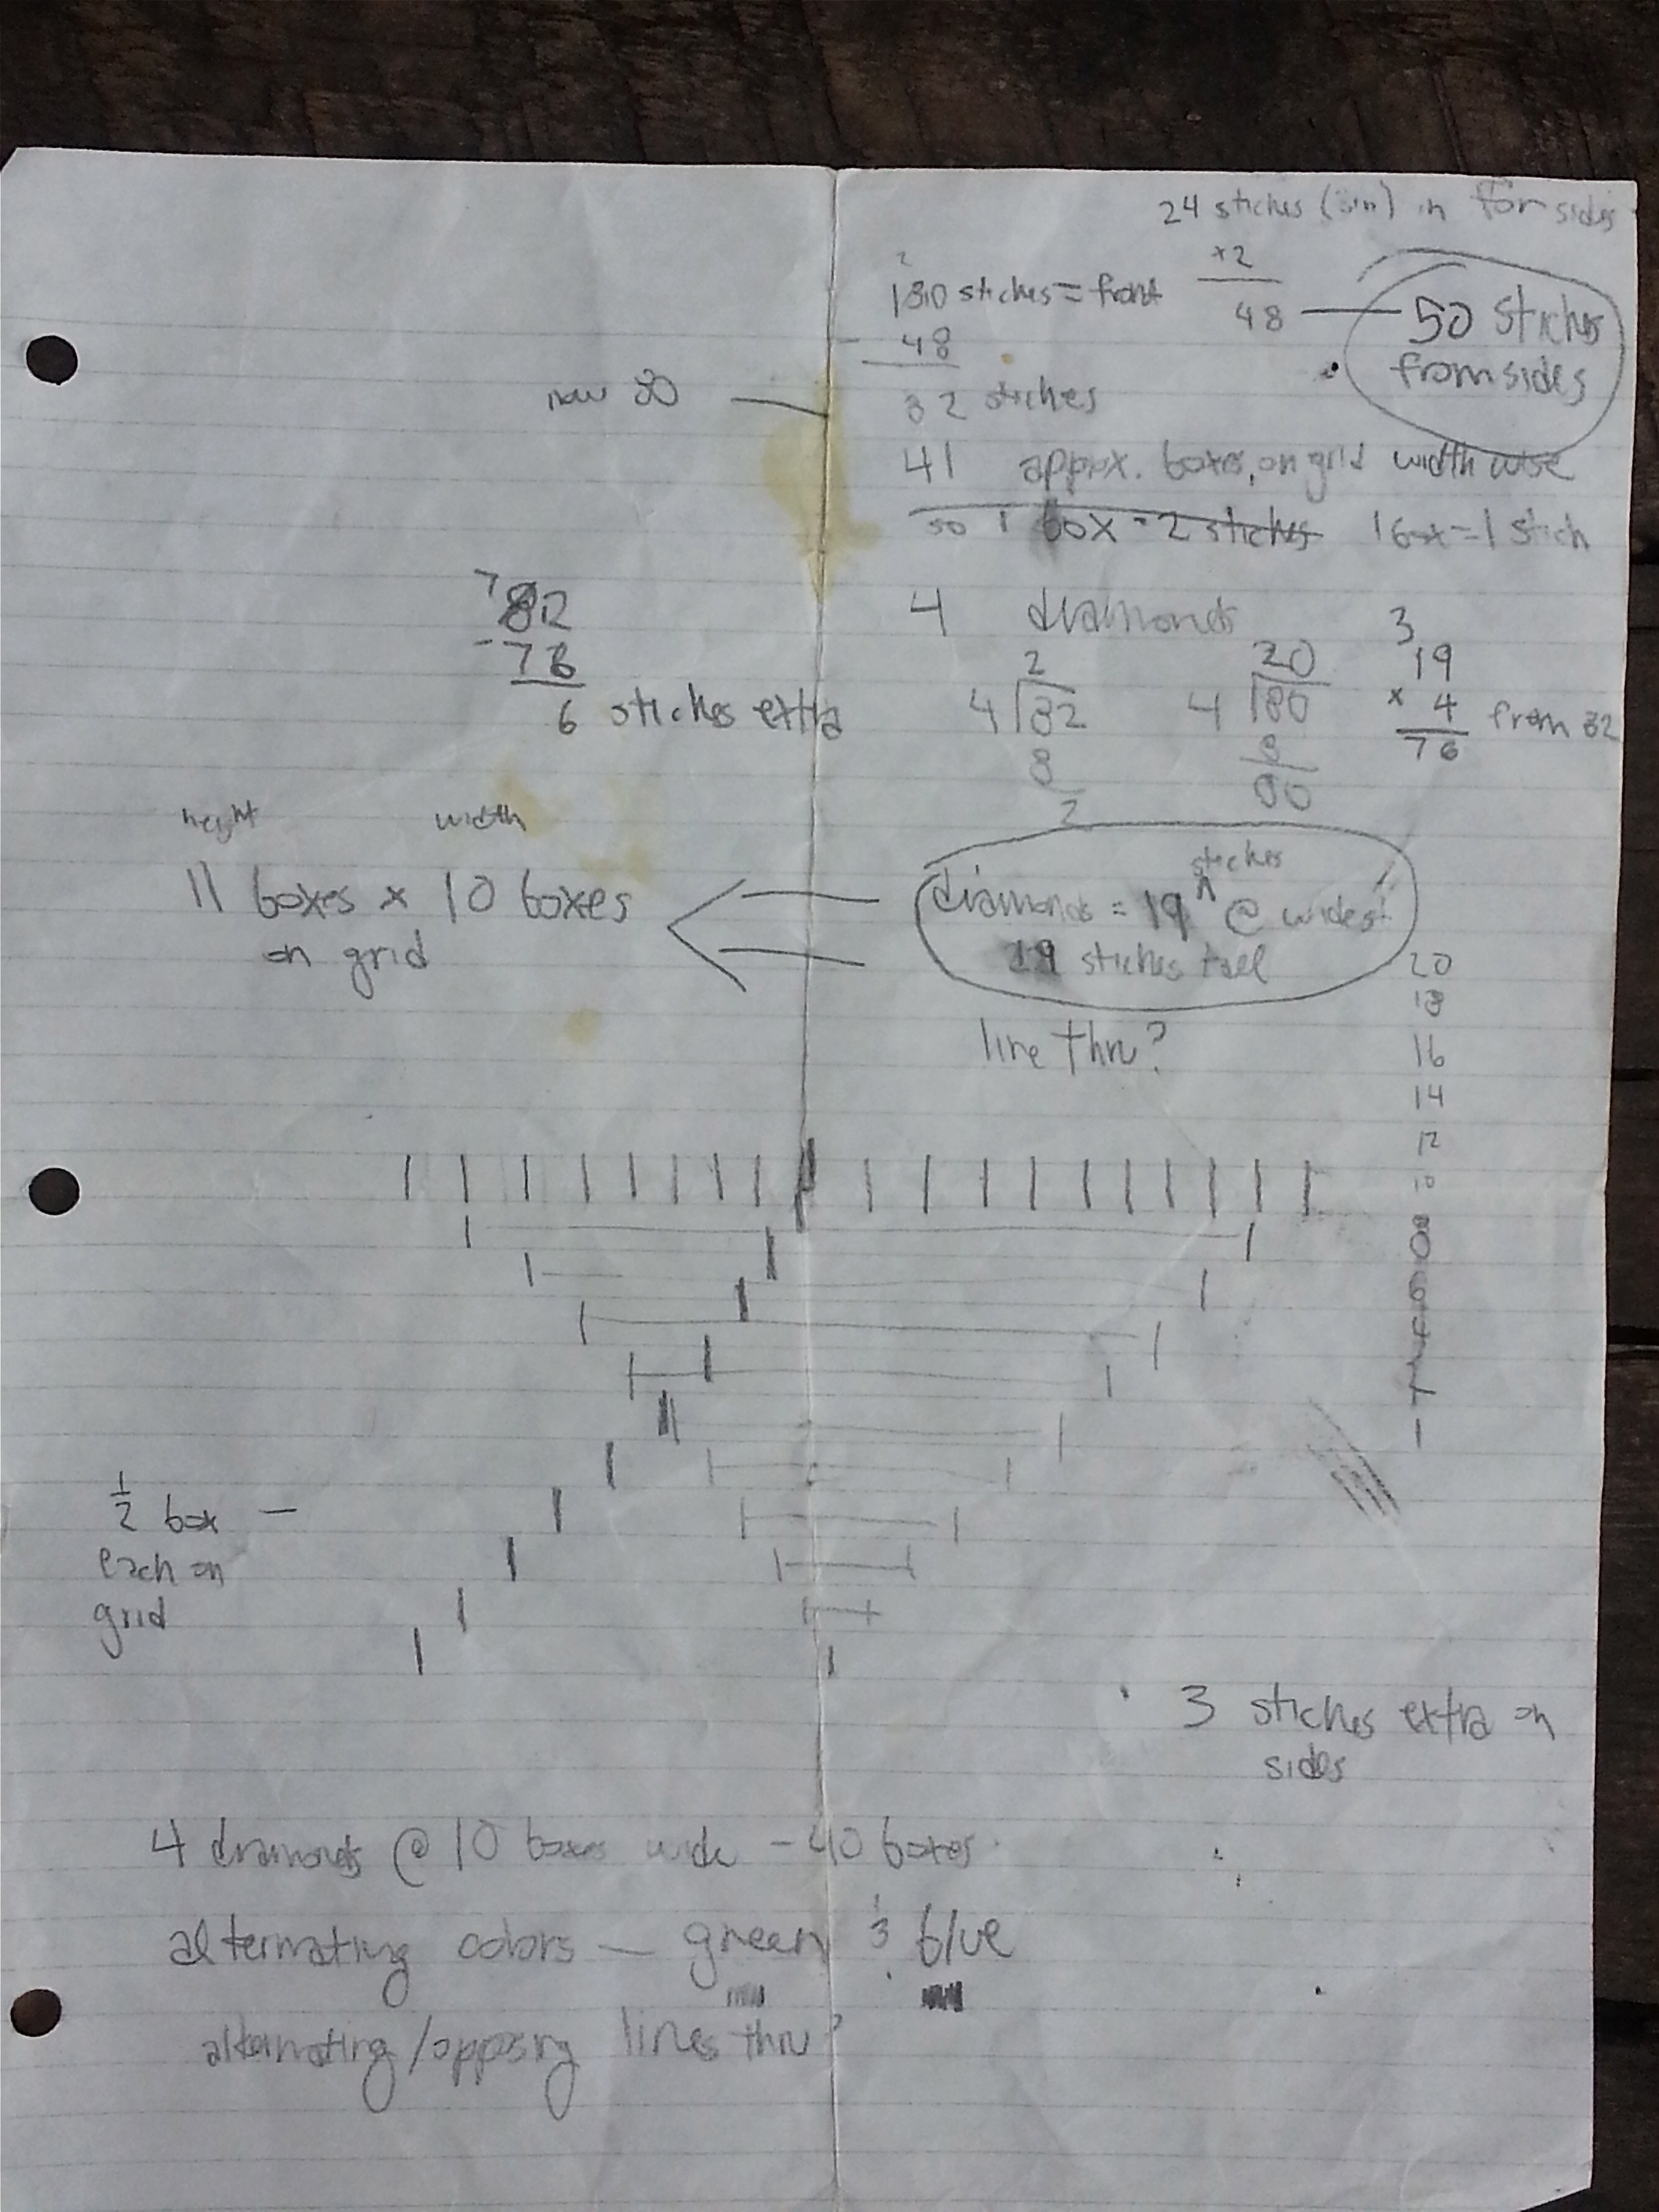 24 stiches (3in) in for sides
x2
48 — 50 stiches
from sides
130 stiches = front
- 48
82 stiches
now 80 —
41 approx. boxes, on grid width wise
so 1 box = 2 stiches 1 box = 1 stich
7
82
-76
6 stiches extra
4 diamonds
2
4 82
8
2
20
4 80
8
00
3
19
x 4
76 from 82
height width
11 boxes x 10 boxes
on grid
stiches
diamonds = 19 ^ @ widest
stiches tall
line thru?
20
18
16
14
12
10
8
1
1/2 box —
each on
grid
3 stiches extra on
sides
4 diamonds @ 10 boxes wide - 40 boxes
alternating colors — green & blue
alternating/opposing lines thru?